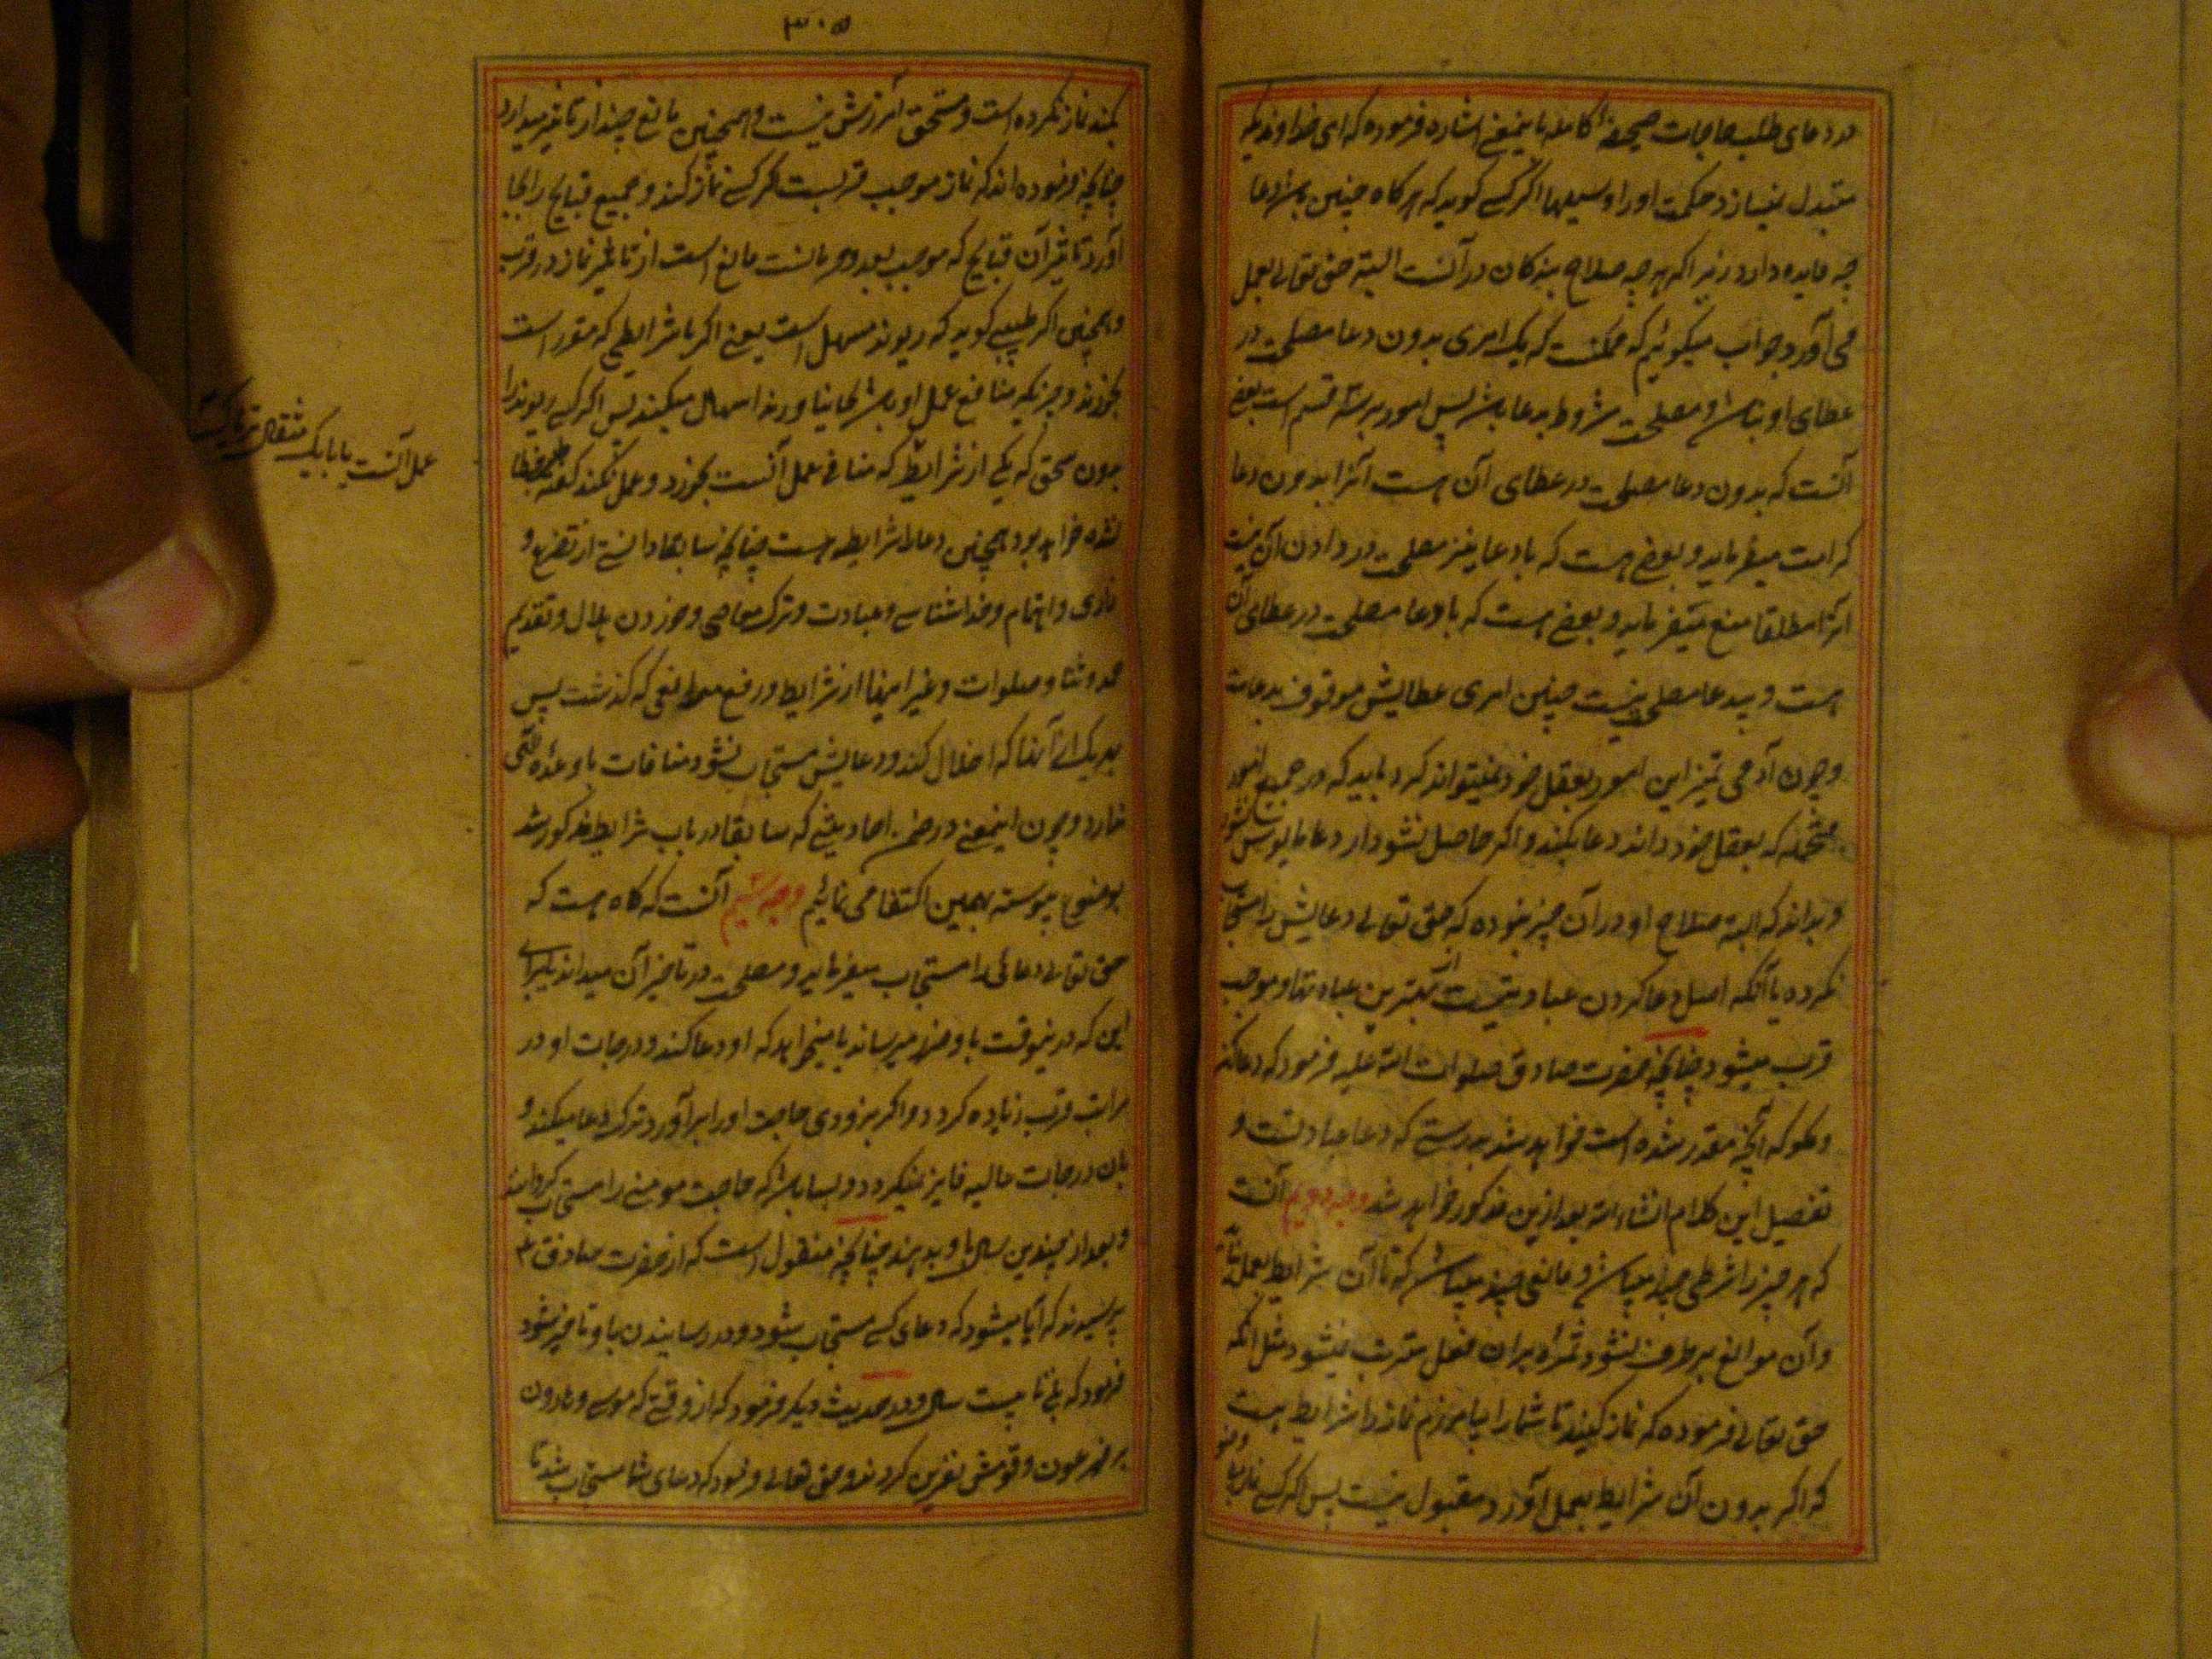 در دعای طلب حاجات صحیفهٔ کامله باینمعنی اشاره فرموده که ای خداوندیکه
متبدل نمیسازد حکمت او را وسیلها اگر کسی کوید که هرکاه چنین باشد دعا
چه فایده دارد زیرا که هرچه صلاح بندکان در آنست البته حق تعالی بعمل
می آورد جواب میکوئیم که ممکنست که یک امری بدون دعا مصلحت در
عطای او نباشد و مصلحت مشروط بدعا باشد پس امور بر سه قسم است بعضی
آنست که بدون دعا مصلحت در عطای آن هست آنرا بدون دعا
کرامت میفرماید و بعضی هست که با دعا نیز مصلحت در دادن آن نیست
آنرا مطلقا منع میفرماید و بعضی هست که با دعا مصلحت در عطای آن
هست و بیدعا مصلحت نیست چنین امری عطایش موقوف بدعاست
و چون آدمی تمیز این امور بعقل خود نمیتواند کرد باید که در جمیع امور
که بعقل خود داند دعا بکند و اکر حاصل نشود از دعا مایوس نشود
و بداند که البته صلاح او در آن چیز نبوده که حق تعالی دعایش را مستجاب
نکرده با آنکه اصل دعا کردن عبادتیست از بهترین عبادتها و موجب
قرب میشود چنانچه حضرت صادق صلوات الله علیه فرمود که دعا کن
و مکو که آنچه مقدر شده است خواهد شد بدرستی که دعا عبادتست و
تفصیل این کلام انشاء الله بعد ازین مذکور خواهد شد وجه دویم آنست
که هر چیز را شرطی چند میباشد و مانعی چند میباشد که تا آن شرایط بعمل نیاید
و آن موانع برطرف نشود ثمره بر آن فعل مترتب نمیشود مثل آنکه
حق تعالی فرموده که نماز کنید تا شما را بیامرزم نماز را شرایط هست
که اکر بدون آن شرایط بعمل آورد مقبول نیست پس اکر کسی نماز بی وضو
۳۰۵
بکند نماز نکرده است و مستحق آمرزش نیست و همچنین مانع چند از تاثیر میدارد
چنانچه فرموده اند که نماز موجب قربست اکر کسی نماز کند و جمیع قبایح را بجا
آورد تاثیر آن قبایح که موجب بعد و حرمانست مانع است از تاثیر نماز در قرب
و همچنین اکر طبیبی کوید که ریوند مسهل است یعنی اکر با شرایطی که مقرر است
بخورند و چیزیکه منافع عمل او باشد بجا نیاورند اسهال میکند پس اکر کسی ریوند را
بدون سحق که یکی از شرایط که منافی عمل آنست بخورد و عمل نکند کفته طبیب خطا
نشده خواهد بود همچنین دعا را شرایط هست چنانچه سابقا دانستی از تضرع و
زاری و اهتمام و خداشناسی و عبادت و ترک معاصی و خوردن حلال و تقدیم
حمد و ثنا و صلوات و غیر اینها از شرایط و رفع موانعی که کذشت پس
بهر یک از آنها که اخلال کند و دعایش مستجاب نشود منافات با وعده الهی
ندارد و چون اینمعنی در ضمن احادیثی که سابقا در باب شرایط مذکور شد
بوضوح پیوسته بهمین اکتفا می نمائیم وجه سیم آنست که کاه هست که
حق تعالی دعائی را مستجاب میفرماید و مصلحت در تاخیر آن میداند یا برای
این که در ینوقت باو ضرر میرساند یا میخواهد که او دعا کند و درجات او در
مراتب قرب زیاده کردد و اکر بزودی حاجت او را برآورد ترک دعا میکند و
بان درجات عالیه فایز نمیکردد و بسا باشد که حاجت مومنی را مستجاب کرداند
و بعد از چندین سال باو بدهند چنانچه منقول است که از حضرت صادق ع
پرسیدند که آیا میشود که دعای کسی مستجاب شود و در رسانیدن باو تاخیر شود
فرمود که بلی تا بیست سال و در حدیث دیکر فرمود که از وقتی که موسی و هارون
بر فرعون و قومش نفرین کردند و حق تعالی فرمود که دعای شما مستجاب شد تا
عمل آنست یا با یک مثقال